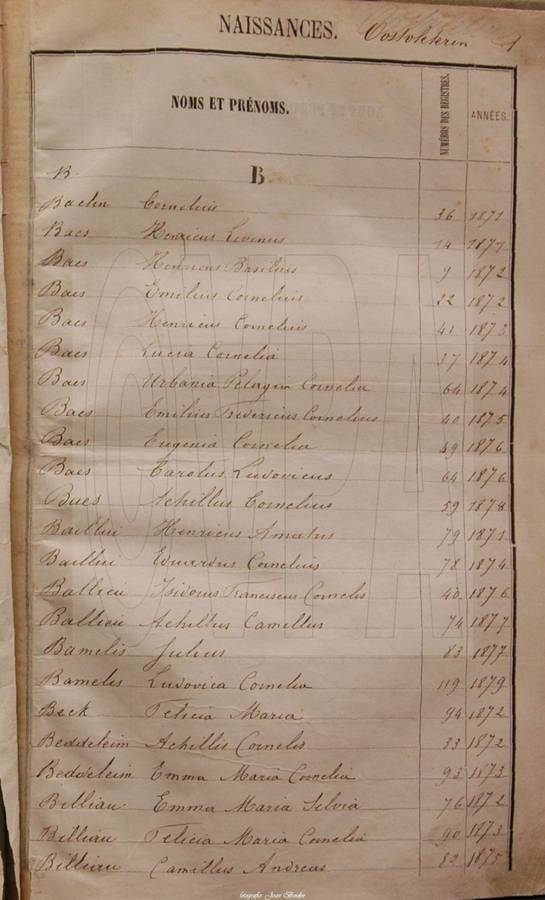 NAISSANCES. Oostokkeren 1
NOMS ET PRÉNOMS. NUMÉROS DES REGISTRES. ANNÉES.
B. B
Baelen Cornelius 36 1871
Baes Henricus Livinus 14 1877
Baes Henricus Basilius 9 1872
Baes Emilius Cornelius 22 1872
Baes Henricus Cornelius 41 1873
Baes Lucia Cornelia 37 1874
Baes Urbania Pelagia Cornelia 64 1874
Baes Emilius Fredericus Cornelius 40 1875
Baes Eugenia Cornelia 49 1876
Baes Carolus Ludovicus 64 1876
Baes Achillus Cornelius 59 1878
Baillieu Henricus Amatus 79 1871
Baillieu Eduardus Cornelius 78 1874
Ballieu Isidorus Franciscus Cornelis 40 1876
Ballieu Achillus Camillus 74 1877
Bamelis Julius 83 1877
Bamelis Ludovica Cornelia 119 1879
Beck Felicia Maria 94 1872
Beddeleim Achillis Cornelis 33 1872
Beddeleim Emma Maria Cornelia 93 1873
Billiau Emma Maria Silvia 76 1872
Billiau Felicia Maria Cornelia 90 1873
Billiau Camillus Andreas 82 1875